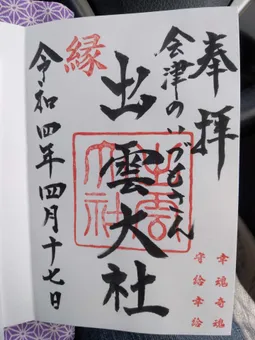 奉拝
会津のいづもさん
出雲大社
縁
令和四年四月十七日
幸魂奇魂
守給幸給
出雲大社